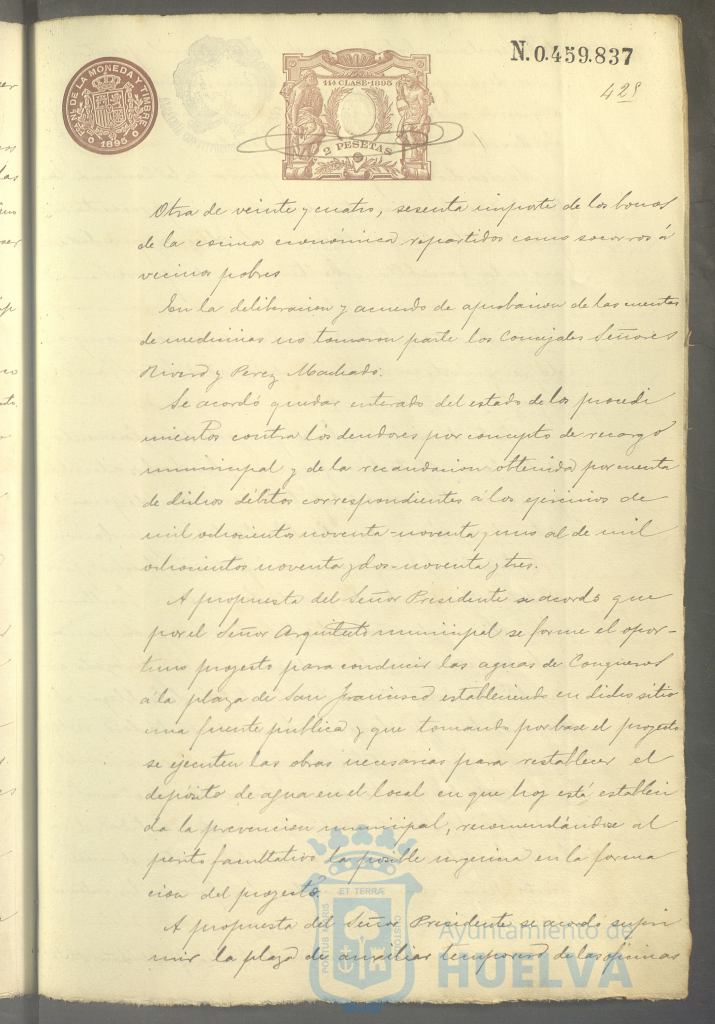 N.0.459.837
428
FN DE LA MONEDA Y TIMBRE
1895
11ª CLASE-1895
2 PESETAS
Otra de veinte y cuatro, sesenta importe de los bonos
de la cocina económica repartidos como socorros á
vecinos pobres
En la deliberacion y acuerdo de aprobacion de las cuentas
de medicinas no tomaron parte los Concejales Señores
Rivero y Perez Machado.
Se acordó quedar enterado del estado de los procedi
mientos contra los deudores por concepto de recargo
municipal y de la recaudacion obtenida por cuenta
de dichos débitos correspondientes á los ejercicios de
mil ochocientos noventa-noventa y uno al de mil
ochocientos noventa y dos-noventa y tres.
A propuesta del Señor Presidente se acordó que
por el Señor Arquitecto municipal se forme el opor-
tuno proyecto para conducir las aguas de Conqueros
á la plaza de San Francisco estableciendo en dicho sitio
una fuente pública y que tomando por base el proyecto
se ejecuten las obras necesarias para restablecer el
depósito de agua en el local en que hoy está estableci
da la prevencion municipal, recomendándose al
perito facultativo la posible urgencia en la forma
cion del proyecto.
A propuesta del Señor Presidente se acordó supri
mir la plaza de auxiliar temporero de las oficinas
PORTUS MARIS ET TERRÆ CUSTODIA
Ayuntamiento de
HUELVA